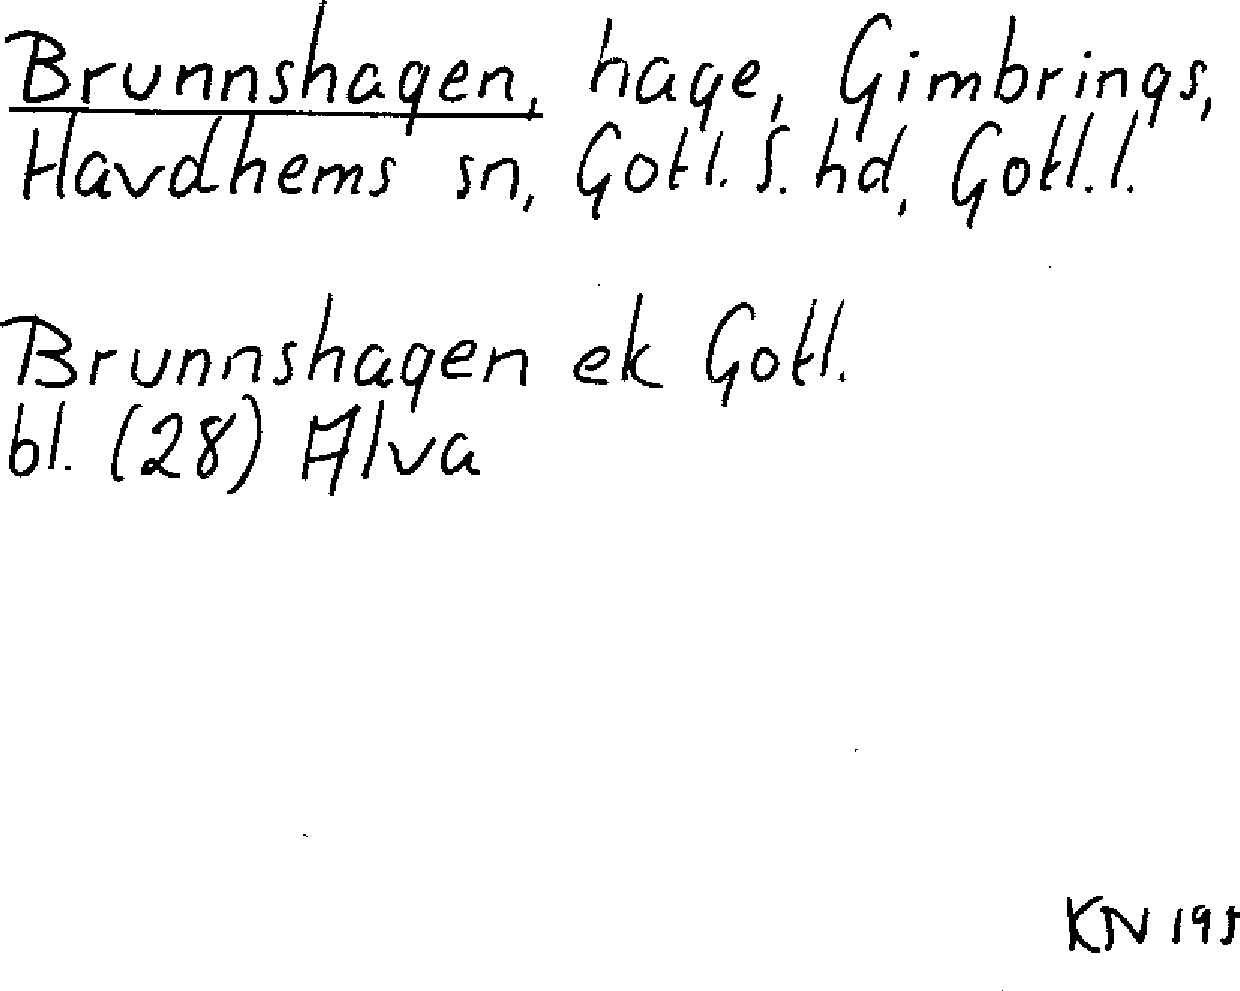 Brunnshagen, hage, Gimbrings,
Havdhems sn, Gotl. S. hd, Gotl. l.
Brunnshagen ek Gotl.
bl. (28) Alva
KN 195